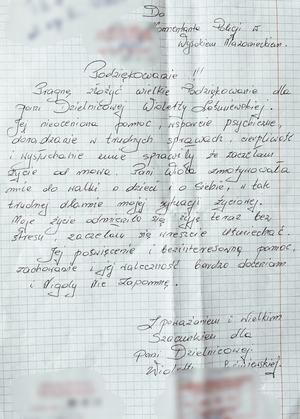 Do
Komendanta Policji w
Wysokiem Mazowieckiem.
Podziękowanie !!!
Pragnę złożyć wielkie Podziękowania dla
Pani Dzielnicowej Wioletty
Jej nieoceniona pomoc, wsparcie psychiczne,
doradzanie w trudnych sprawach, cierpliwość
i wysłuchanie mnie sprawiły że zaczęłam
życie od nowa. Pani Wiola zmotywowała
mnie do walki o dzieci i o siebie, w tak
trudnej dla mnie mojej sytuacji życiowej.
Moje życie odmieniło się, żyję teraz bez
stresu, zaczęłam się wreszcie uśmiechać.
Jej poświęcenie i bezinteresowną pomoc,
zachowanie i jej waleczność bardzo doceniam
i Nigdy Nie Zapomnę.
Z poważaniem i wielkim
Szacunkiem dla
Pani Dzielnicowej
Wioletty